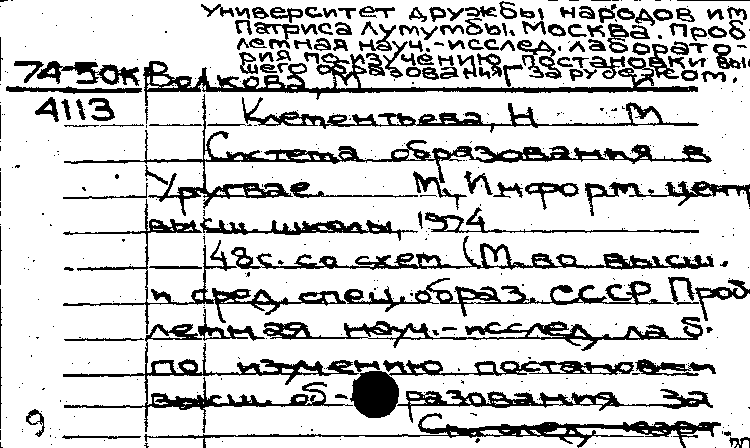 Университет дружбы народов им
Патриса Лумумбы. Москва. Проб-
лемная науч.-исслед. лаборато-
рия по изучению постановки выс
шего образования за рубежом.
74-50к Волкова, М
4113 Клементьева, Н М
Система образования в
Уругвае. М., Информ. центр
высш. школы, 1974.
48с. со схем (М-во высш.
и сред. спец. образ. СССР. Проб
лемная науч.-исслед. лаб.
по изучению постановки
высш. об-разования за
9 См. след. карт.